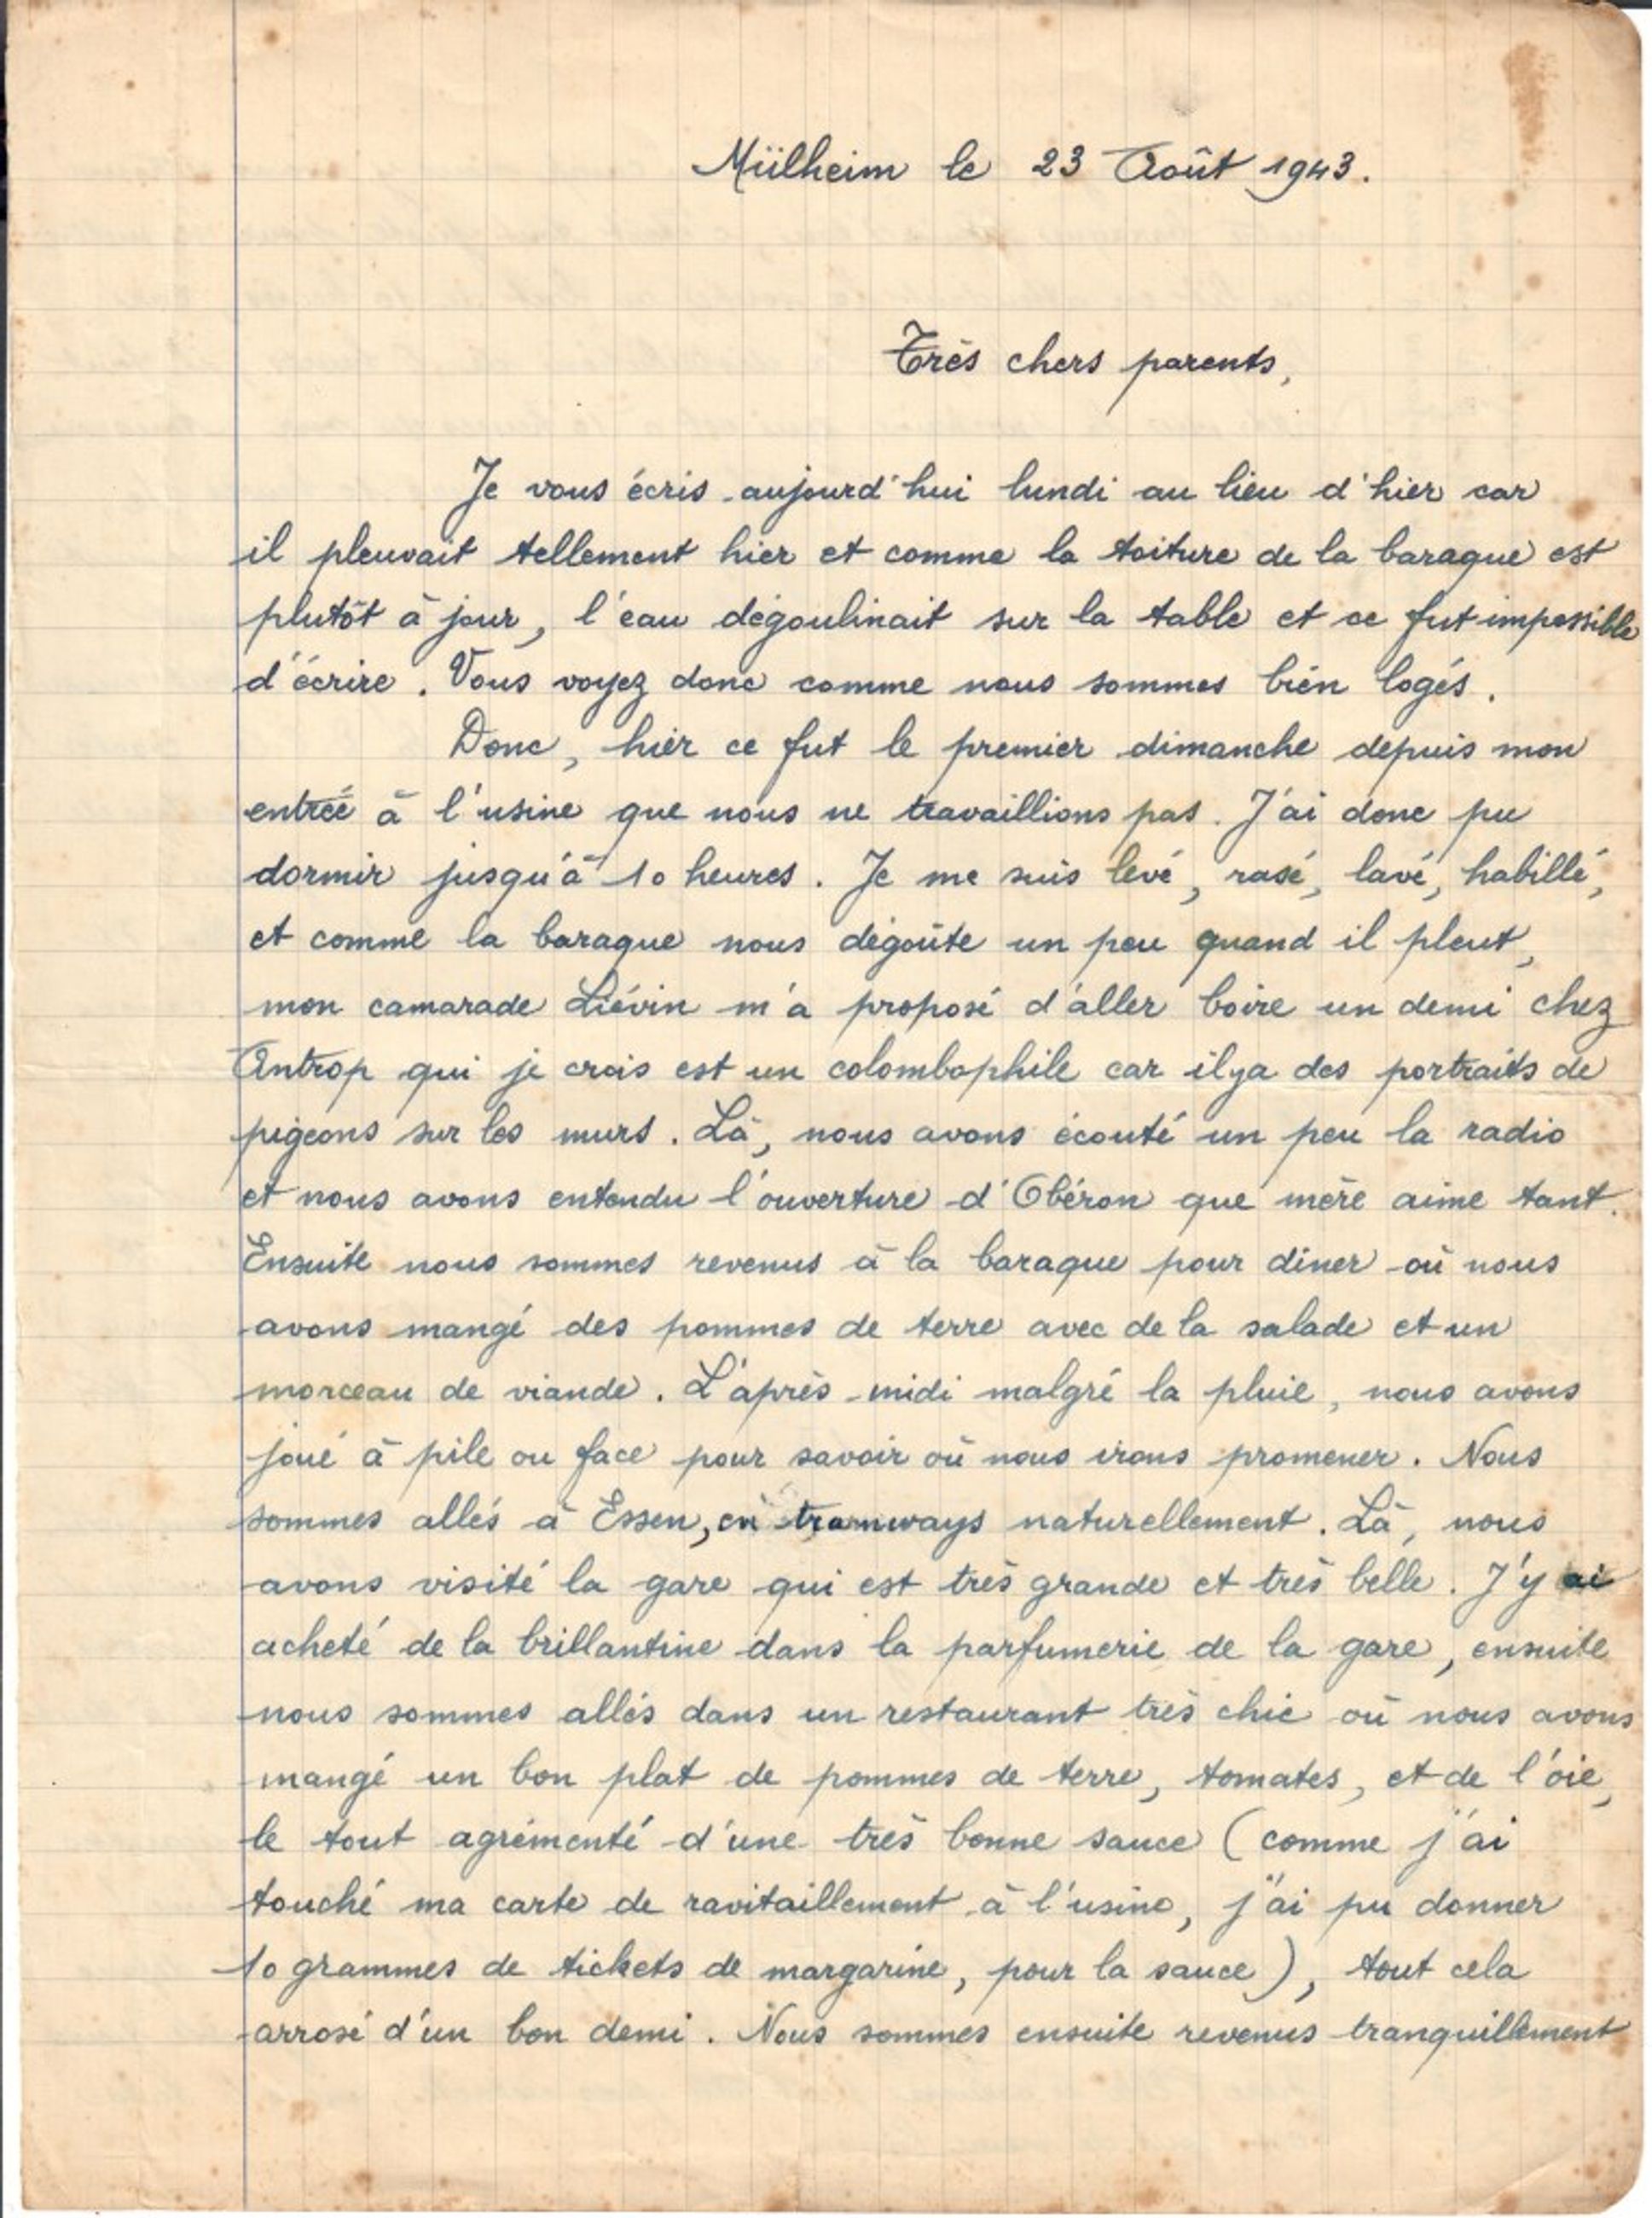 Mülheim le 23 Août 1943.
Très chers parents,
Je vous écris aujourd'hui lundi au lieu d'hier car
il pleuvait tellement hier et comme la toiture de la baraque est
plutôt à jour, l'eau dégoulinait sur la table et ce fut impossible
d'écrire. Vous voyez donc comme nous sommes bien logés.
Donc, hier ce fut le premier dimanche depuis mon
entrée à l'usine que nous ne travaillions pas. J'ai donc pu
dormir jusqu'à 10 heures. Je me suis levé, rasé, lavé, habillé,
et comme la baraque nous dégoûte un peu quand il pleut,
mon camarade Liévin m'a proposé d'aller boire un demi chez
Antrop qui je crois est un colombophile car il y a des portraits de
pigeons sur les murs. Là, nous avons écouté un peu la radio
et nous avons entendu l'ouverture d'Obéron que mère aime tant.
Ensuite nous sommes revenus à la baraque pour diner où nous
avons mangé des pommes de terre avec de la salade et un
morceau de viande. L'après-midi malgré la pluie, nous avons
joué à pile ou face pour savoir où nous irons promener. Nous
sommes allés à Essen, en tramways naturellement. Là, nous
avons visité la gare qui est très grande et très belle. J'y ai
acheté de la brillantine dans la parfumerie de la gare, ensuite
nous sommes allés dans un restaurant très chic où nous avons
mangé un bon plat de pommes de terre, tomates, et de l'oie,
le tout agrémenté d'une très bonne sauce (comme j'ai
touché ma carte de ravitaillement à l'usine, j'ai pu donner
10 grammes de tickets de margarine, pour la sauce), tout cela
arrosé d'un bon demi. Nous sommes ensuite revenus tranquillement